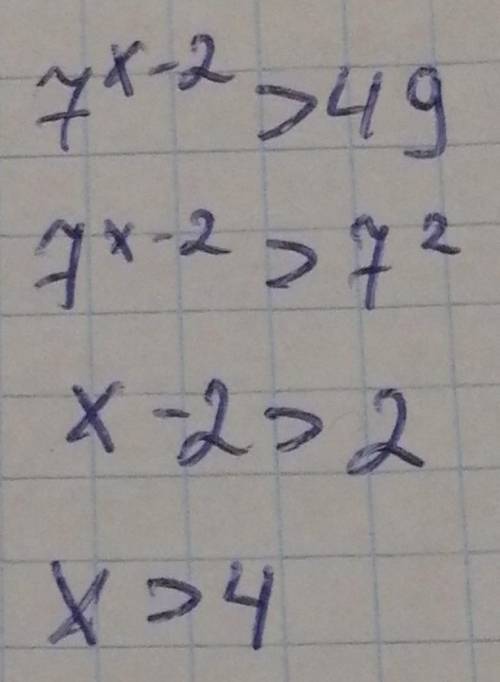 7^{x-2} > 49
7^{x-2} > 7^2
x - 2 > 2
x > 4